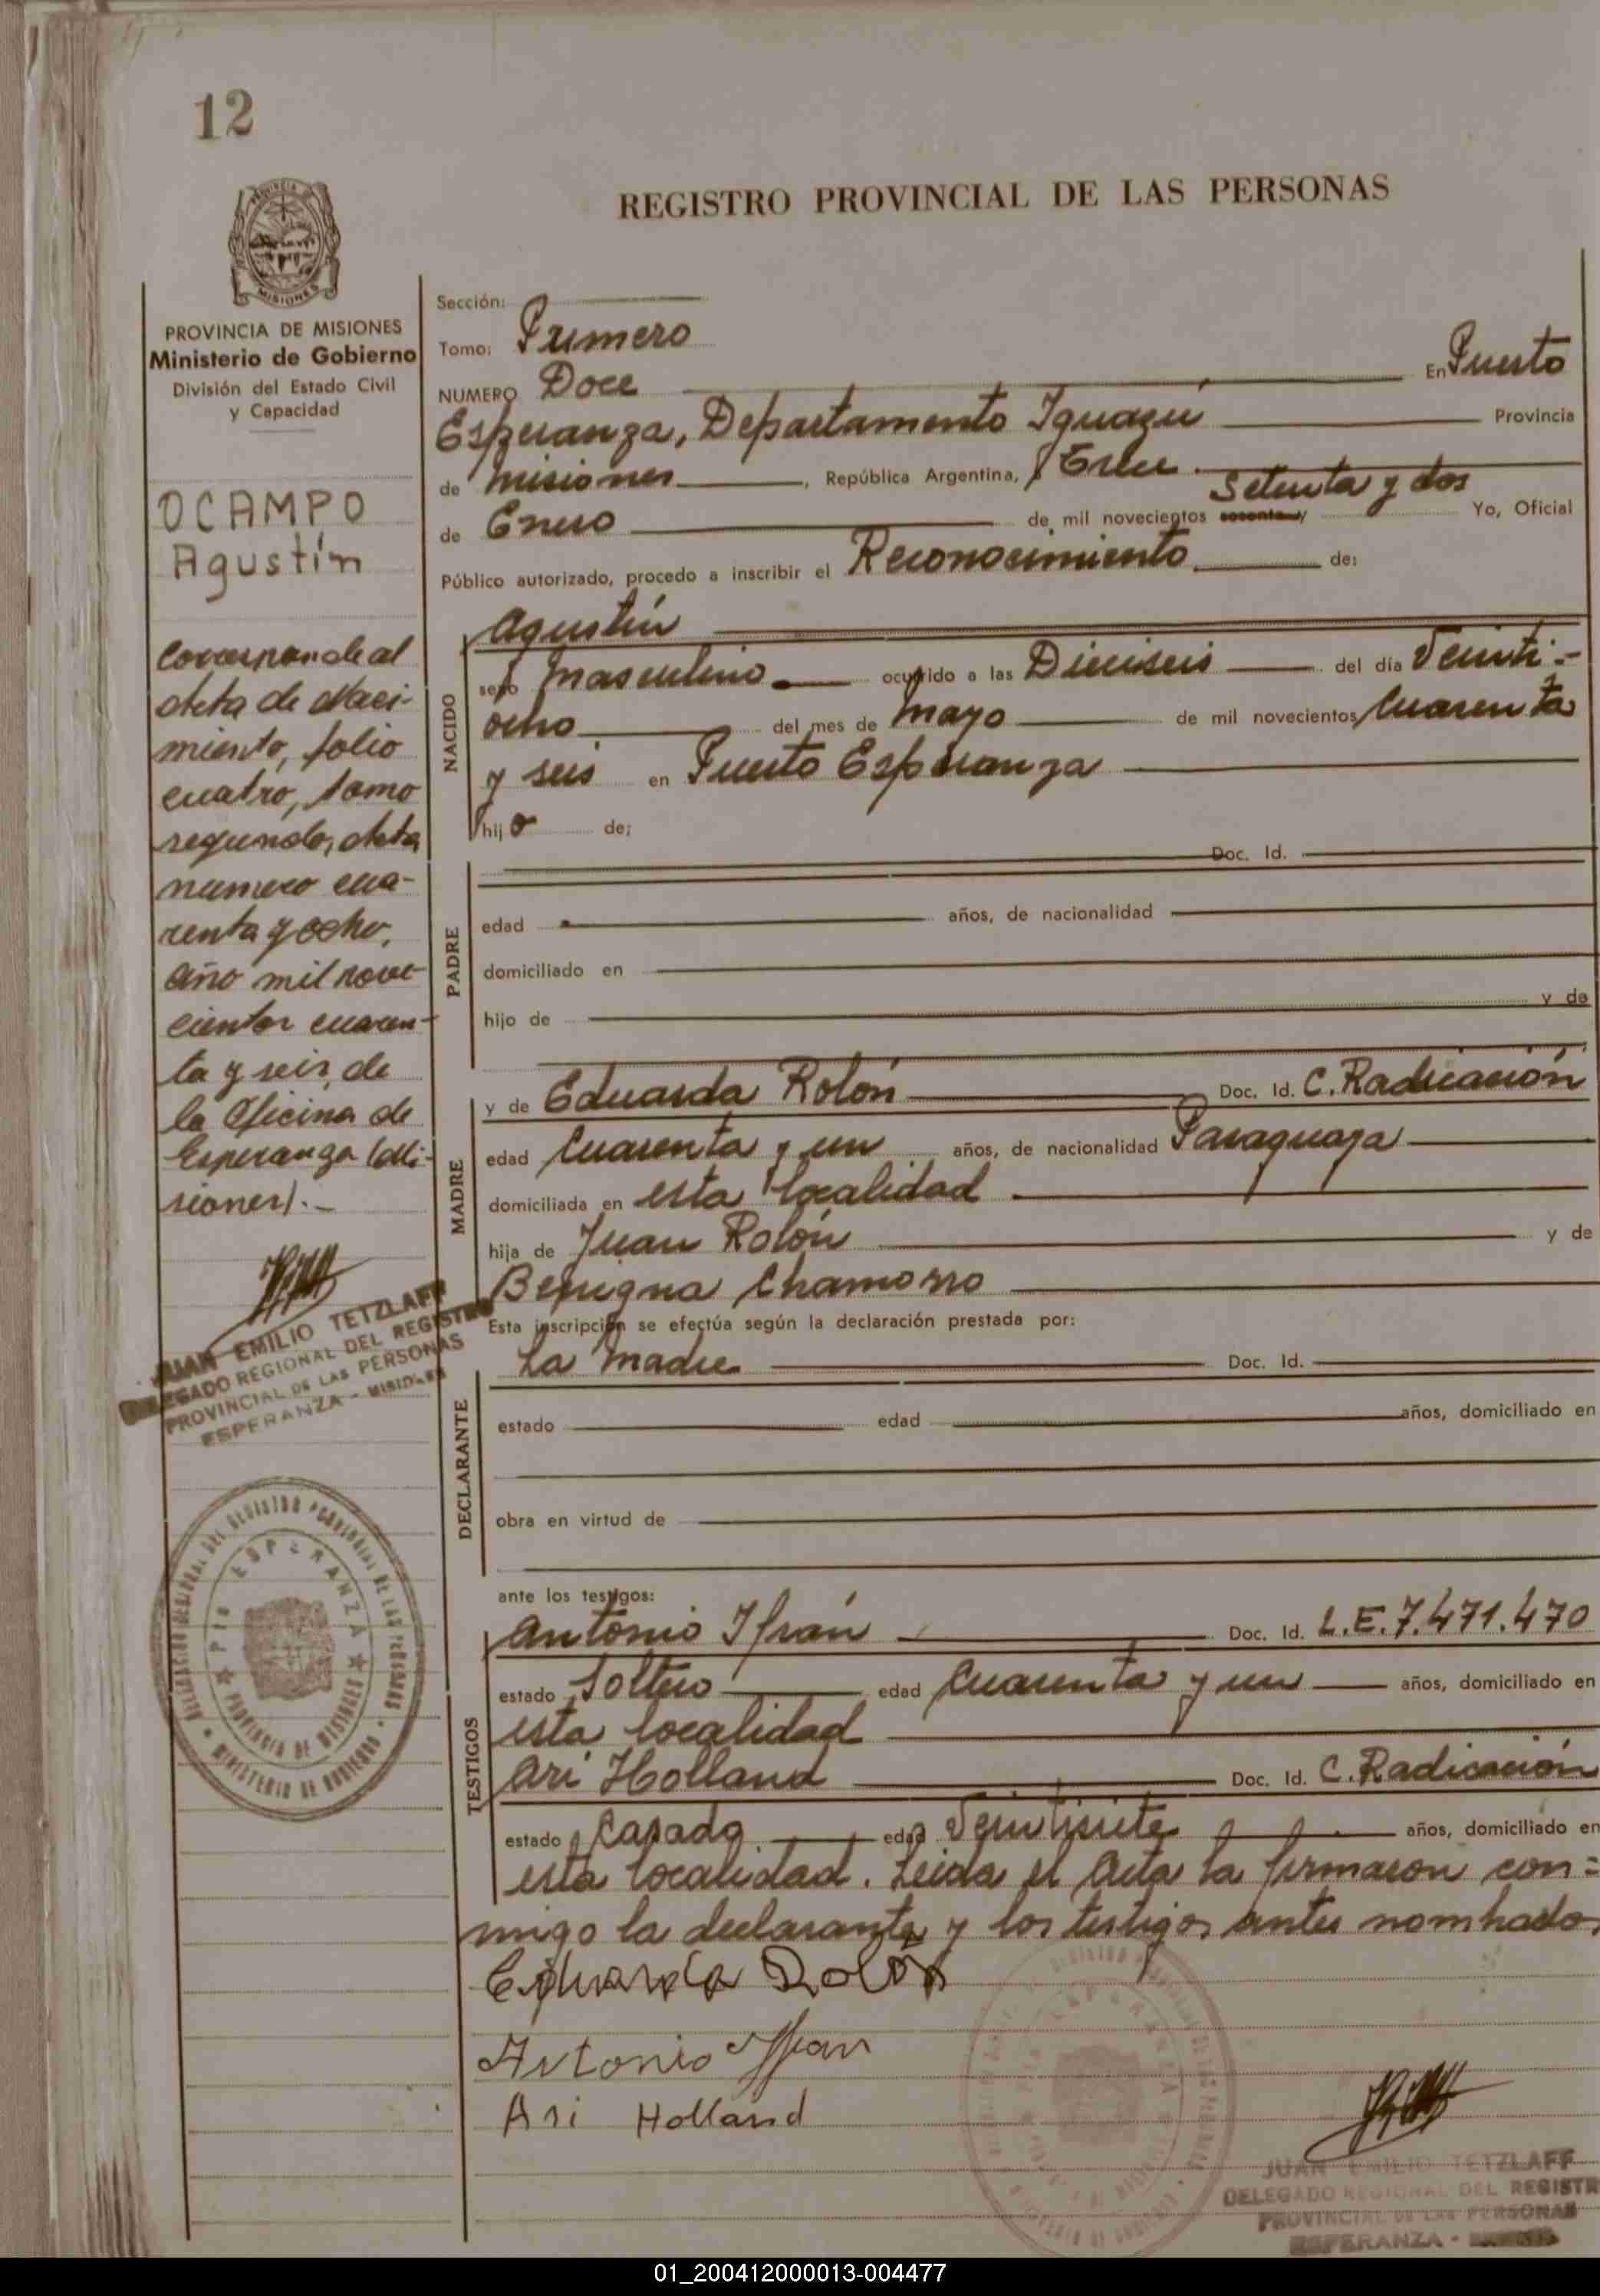 12
REGISTRO PROVINCIAL DE LAS PERSONAS
PROVINCIA DE MISIONES
Ministerio de Gobierno
División del Estado Civil
y Capacidad
OCAMPO
Agustín
Corresponde al
Acta de Naci-
miento, folio
cuatro, tomo
segundo, Acta
numero cua-
renta y ocho,
año mil nove-
cientos cuaren-
ta y seis, de
la Oficina de
Esperanza (Mi-
siones).-
JUAN EMILIO TETZLAFF
DELEGADO REGIONAL DEL REGISTRO
PROVINCIAL DE LAS PERSONAS
ESPERANZA - MISIONES
DELEGACION REGIONAL DEL REGISTRO PROVINCIAL DE LAS PERSONAS
MINISTERIO DE GOBIERNO
PTO ESPERANZA
PROVINCIA DE MISIONES
Sección:
Tomo: Primero
NUMERO Doce En Puerto
Esperanza, Departamento Iguazú Provincia
de Misiones, República Argentina, a Trece
de Enero de mil novecientos sesenta y Setenta y dos Yo, Oficial
Público autorizado, procedo a inscribir el Reconocimiento de:
NACIDO
Agustín
sexo Masculino ocurrido a las Dieciseis del día Veinti-
ocho del mes de Mayo de mil novecientos Cuarenta
y seis en Puerto Esperanza
hijo de:
PADRE
Doc. Id.
edad años, de nacionalidad
domiciliado en
hijo de y de
MADRE
y de Eduarda Rolón Doc. Id. C. Radicación
edad Cuarenta y un años, de nacionalidad Paraguaya
domiciliada en esta localidad
hija de Juan Rolón y de
Benigna Chamorro
Esta inscripción se efectúa según la declaración prestada por:
DECLARANTE
La Madre Doc. Id.
estado edad años, domiciliado en
obra en virtud de
ante los testigos:
TESTIGOS
Antonio Ifrán Doc. Id. L.E. 7.471.470
estado Soltero edad Cuarenta y un años, domiciliado en
esta localidad
Ari Holland Doc. Id. C. Radicación
estado Casado edad Veintisiete años, domiciliado en
esta localidad. Leida el Acta la firmaron con=
migo la declarante y los testigos antes nombrado.
Eduarda Rolón
Antonio Ifran
Ari Holland
JUAN EMILIO TETZLAFF
DELEGADO REGIONAL DEL REGISTR
PROVINCIAL DE LAS PERSONAS
ESPERANZA -
01_200412000013-004477